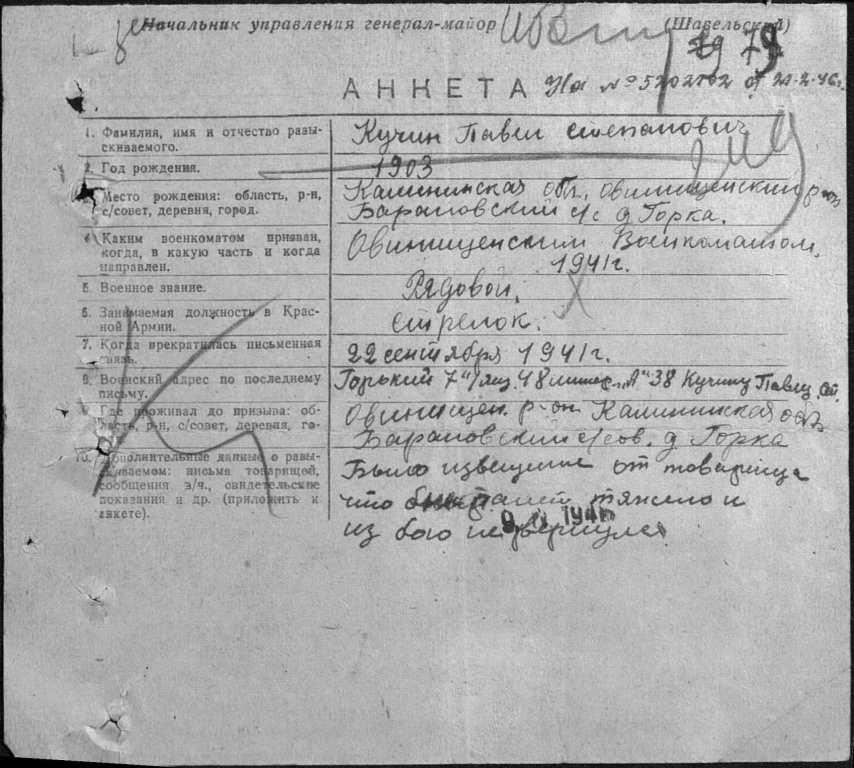 Начальник управления генерал-майор (Шавельский)
79
АНКЕТА На № 5202702 от 21-2-46г.
1. Фамилия, имя и отчество разы-
скиваемого.
Кучин Павел степанович
2. Год рождения.
1903
3. Место рождения: область, р-н,
с/совет, деревня, город.
Калининская обл., овинищенский р-он
Барановский с/с д Горка.
4. Каким военкоматом призван,
когда, в какую часть и когда
направлен.
Овинищенским Воинкоматом,
1941г.
5. Военное звание.
Рядовой,
6. Занимаемая должность в Крас-
ной Армии.
стрелок.
7. Когда прекратилась письменная
связь.
22 сентября 1941г.
8. Воинский адрес по последнему
письму.
Горький 7 48 литер „А" 38 Кучину Павлу ст.
9. Где проживал до призыва: об-
ласть, р-н, с/совет, деревня, го-
Овинищен. р-он Калининская обл
Барановский с/сов. д Горка
10. Дополнительные данные о разы-
скиваемом: письма товарищей,
сообщения з/ч., свидетельские
показания и др. (приложить к
анкете).
Было извещение от товарища
что тяжело и
из бою не вернулся